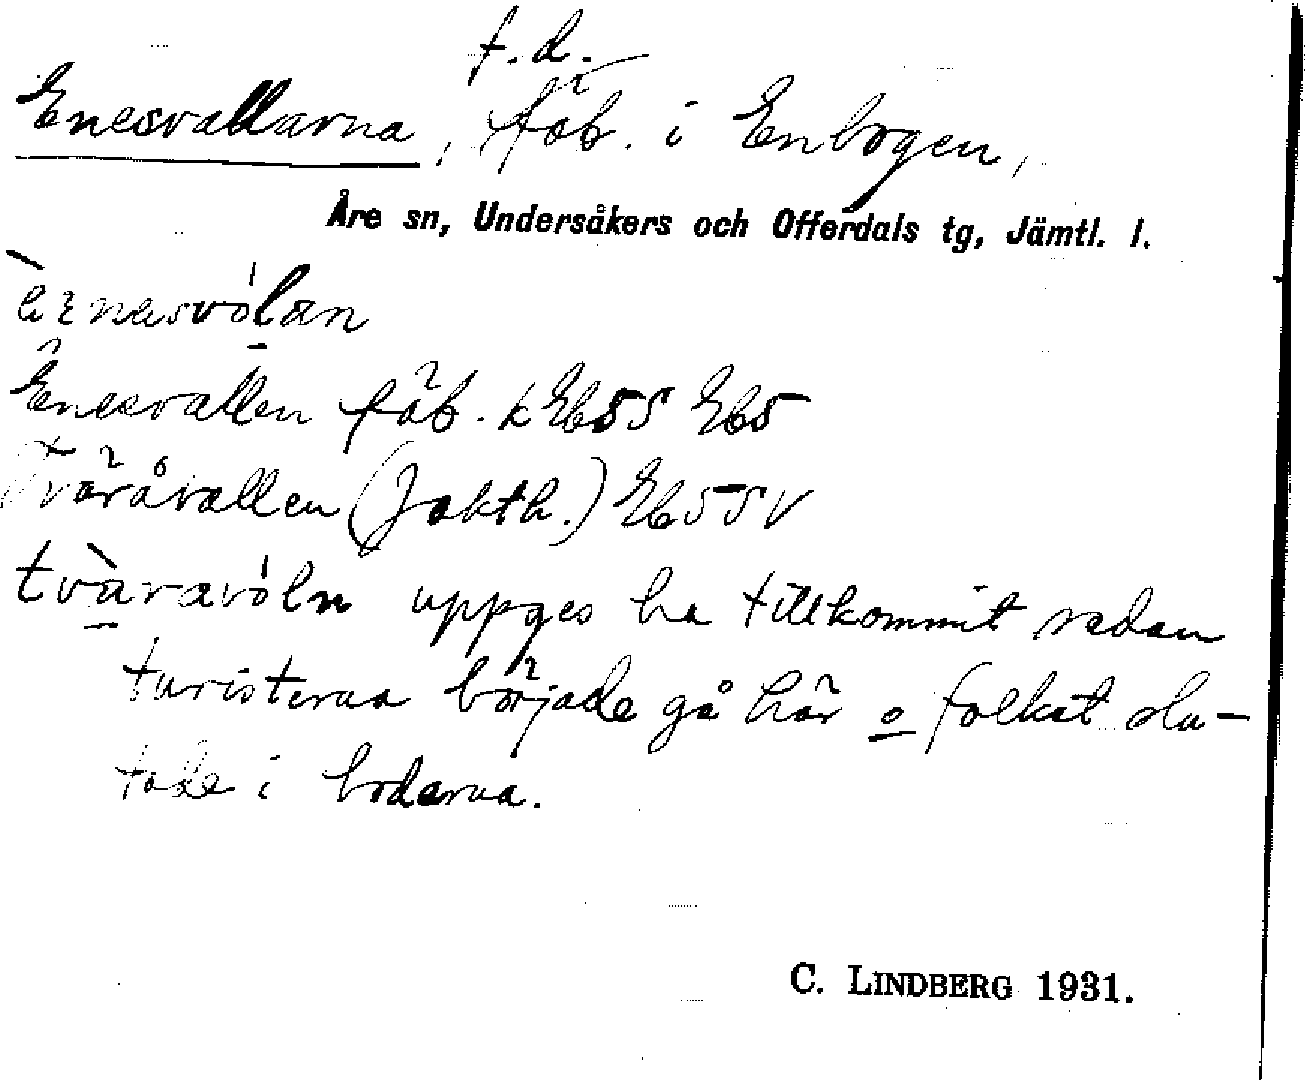 f.d.
Enesvallarna, fäb. i Enbogen,
Åre sn, Undersåkers och Offerdals tg, Jämtl. l.
Enesvallen fäb. k Eb5S Eb5
Tväråvallen (Jakth.) Eb5SV
tvàravóln uppges ha tillkommit sedan
turisterna började gå här o folket slu-
tade i boderna.
C. LINDBERG 1931.